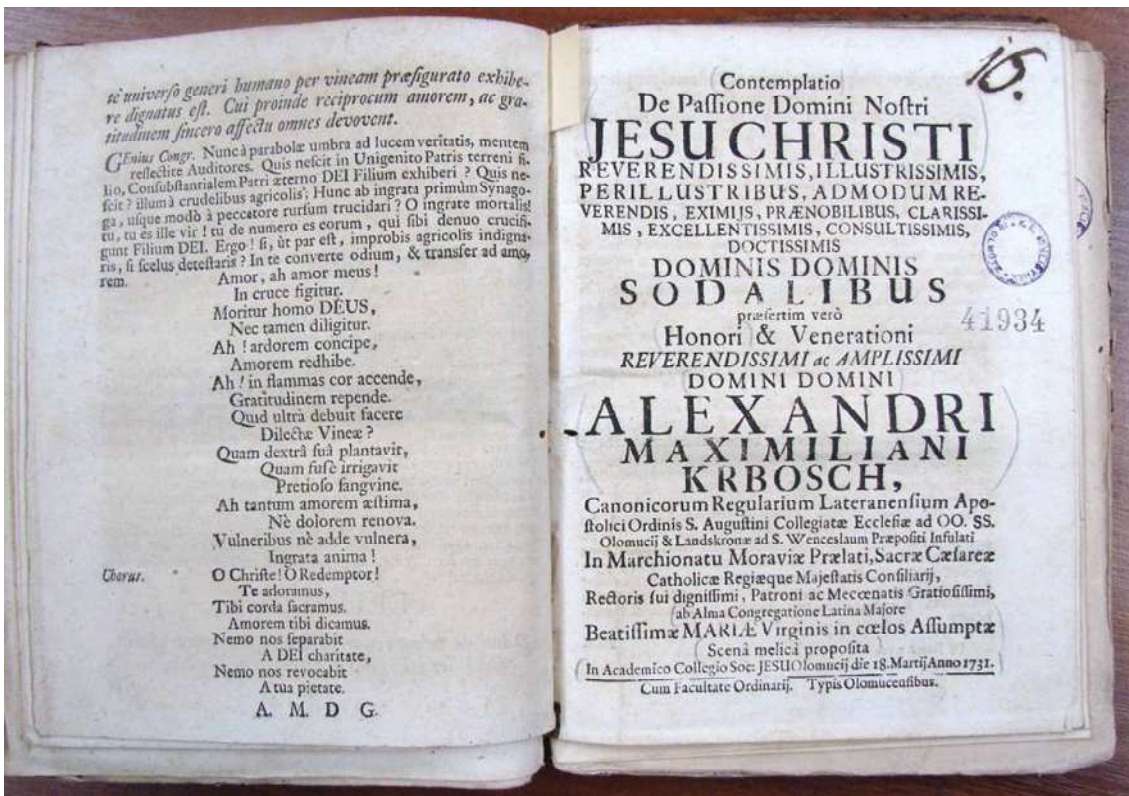 te universo generi humano per vineam præfigurato exhibe-
re dignatus est. Cui proinde reciprocum amorem, ac gra-
titudinem sincero affectu omnes devovent.
GEnius Congr. Nunc à parabolæ umbra ad lucem veritatis, mentem
reflectite Auditores. Quis nescit in Unigenito Patris terreni fi-
lio, Consubstantialem Patri æterno DEI Filium exhiberi ? Quis ne-
scit ? illum à crudelibus agricolis; Hunc ab ingrata primùm Synago-
ga, usque modò à peccatore rursum trucidari ? O ingrate mortalis!
tu, tu es ille vir ! tu de numero es eorum, qui sibi denuo crucifi-
gunt Filium DEI. Ergo ! si, ùt par est, improbis agricolis indigna-
ris, si scelus detestaris ? In te converte odium, & transfer ad amo-
rem.
Amor, ah amor meus !
In cruce figitur.
Moritur homo DEUS,
Nec tamen diligitur.
Ah ! ardorem concipe,
Amorem redhibe.
Ah ! in flammas cor accende,
Gratitudinem repende.
Quid ultrà debuit facere
Dilectæ Vineæ ?
Quam dextrâ suâ plantavit,
Quam fusè irrigavit
Pretioso sangvine.
Ah tantum amorem æstima,
Nè dolorem renova.
Vulneribus nè adde vulnera,
Ingrata anima !
Chorus. O Christe! O Redemptor!
Te adoramus,
Tibi corda sacramus.
Amorem tibi dicamus.
Nemo nos separabit
A DEI charitate,
Nemo nos revocabit
A tua pietate.
A. M. D G.
16.
Contemplatio
De Passione Domini Nostri
JESU CHRISTI
REVERENDISSIMIS, ILLUSTRISSIMIS,
PERILLUSTRIBUS, ADMODUM RE-
VERENDIS, EXIMIJS, PRÆNOBILIBUS, CLARISSI-
MIS, EXCELLENTISSIMIS, CONSULTISSIMIS,
DOCTISSIMIS
DOMINIS DOMINIS
SODALIBUS
præsertim verò
Honori & Venerationi
41934
REVERENDISSIMI ac AMPLISSIMI
DOMINI DOMINI
ALEXANDRI
MAXIMILIANI
KRBOSCH,
Canonicorum Regularium Lateranensium Apo-
stolici Ordinis S. Augustini Collegiatæ Ecclesiæ ad OO. SS.
Olomucij & Landskronæ ad S. Wenceslaum Præpositi Infulati
In Marchionatu Moraviæ Prælati, Sacræ Cæsareæ
Catholicæ Regiæque Majestatis Consiliarij,
Rectoris sui dignissimi, Patroni ac Mecœnatis Gratiosissimi,
ab Alma Congregatione Latina Majore
Beatissimæ MARIÆ Virginis in cœlos Assumptæ
Scenâ melicâ proposita
In Academico Collegio Soc: JESU Olomucij die 18. Martij Anno 1731.
Cum Facultate Ordinarij. Typis Olomucensibus.